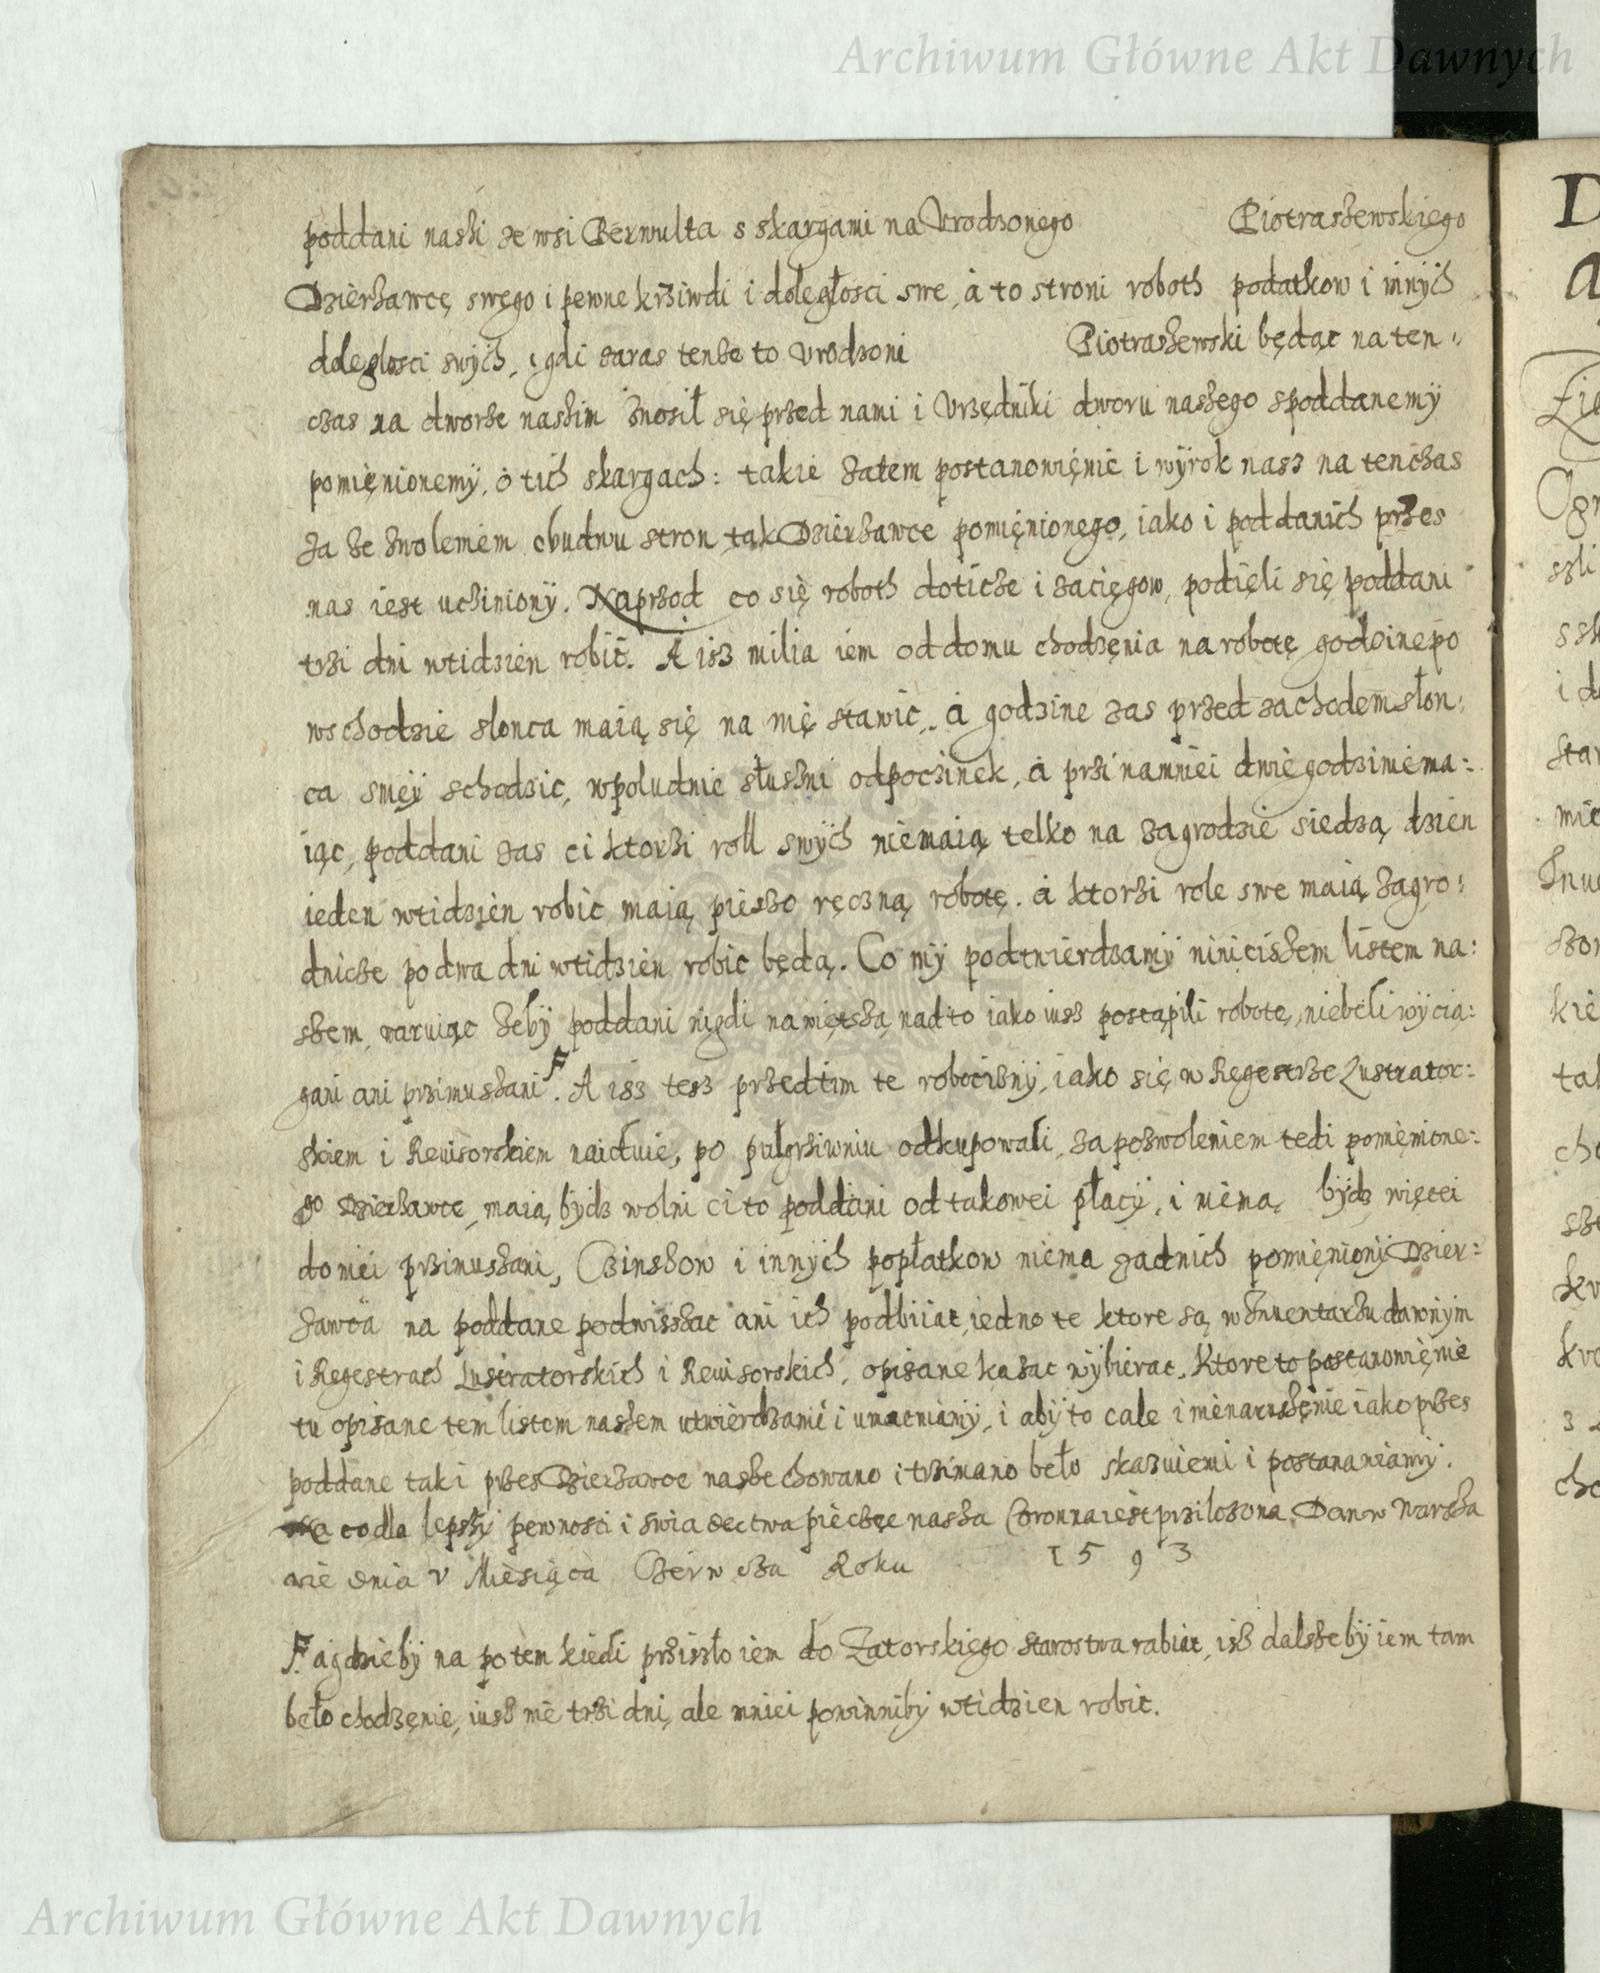 Archiwum Główne Akt Dawnych
poddani naszi ze wsi Berwulta s skargami na Vrodzonego Piotraszewskięgo
Dzierżawcę swęgo i pewne krziwdi i dolęgłosci swe, à to stroni roboth podatkow i innÿch
dolęglosci swÿch, i gdi zaras tenże to Vrodzoni Piotraszewski będąc na ten⸗
czas na dworze naszim znosił się przed nami i Vrzędniki dworu naszego s poddanemÿ
pomięnionemÿ, ò tich skargach: takie zatem postanowięnie i wÿrok nasz na tenczas
za ze zwoleniem obudwu stron tak Dzierżawce pomięnionego, iako i poddanich przes
nas iest ucziniony. Naprzod co się roboth doticze i zacięgow, podięli się poddani
trzi dni wtidzien robic. A isz milia iem od domu chodzęnia na robotę godzine po
wschodzie slonca maią się na nię stawic, à godzine zas przed zachodem słon⸗
ca snięÿ schodzic, w poludnie słuszni odpoczinek, à przi namniei dwie godzinie ma⸗
iąc, poddani zas ci ktorzi roll swÿch niemaią telko na zagrodzie siedzą dzien
ieden wtidzien robic maią pieszo ręczną robotę. à ktorzi role swe maią zagro⸗
dnicze po dwa dni wtidzien robic będą. Co mÿ podtwierdzamÿ ninieiszem listem na⸗
szem, waruiąc żebÿ poddani nigdi na więtszą nad to iako iusz postąpili robotę, niebeli wÿcią⸗
gani ani przimuszani F. A isz tesz przedtim te robocizny, iako się w Ręgestrze Lustrator⸗
skiem i Reuisorskiem naiduie, po pułgrziwniu odkupowali, za pozwoleniem tedi pomięnione⸗
go Dzierżawce, maią bÿdz wolni ci to poddani od takowei płacÿ, i niemą bÿdz więcei
do niei przimuszani, Czinszow i innÿch popłatkow niema żadnich pomięnionÿ Dzier⸗
żawca na poddane podwisszac ani ich podbiiac, iedno te ktore są w Inuentarzu dawnÿm
i Regestrach Lustratorskich i Reuisorskich, opisane kazac wÿbierac. Ktore to postanowięnie
tu opisane tem listem naszem utwierdzami i umacniamÿ, i abÿ to cale i nienaruszęnie iako przes
poddane tak i przes Dzierżawce nasze chowano i trzimano beło skazuiemi i postanawiamÿ.
Na co dla lepszÿ pewnosci i swiadectwa pieczęc nasza Coronna iest prziłozona. Dan w Warsza
wie dnia V Miesiąca Czerwcza Roku 1593
F. a gdzie bÿ na potem kiedi prziszło iem do Zatorskięgo starostwa rabiac, isz dalsze bÿ iem tam
beło chodzęnie, iusz nie trzi dni, ale mniei powinni bÿ wtidzien robic.
Archiwum Główne Akt Dawnych